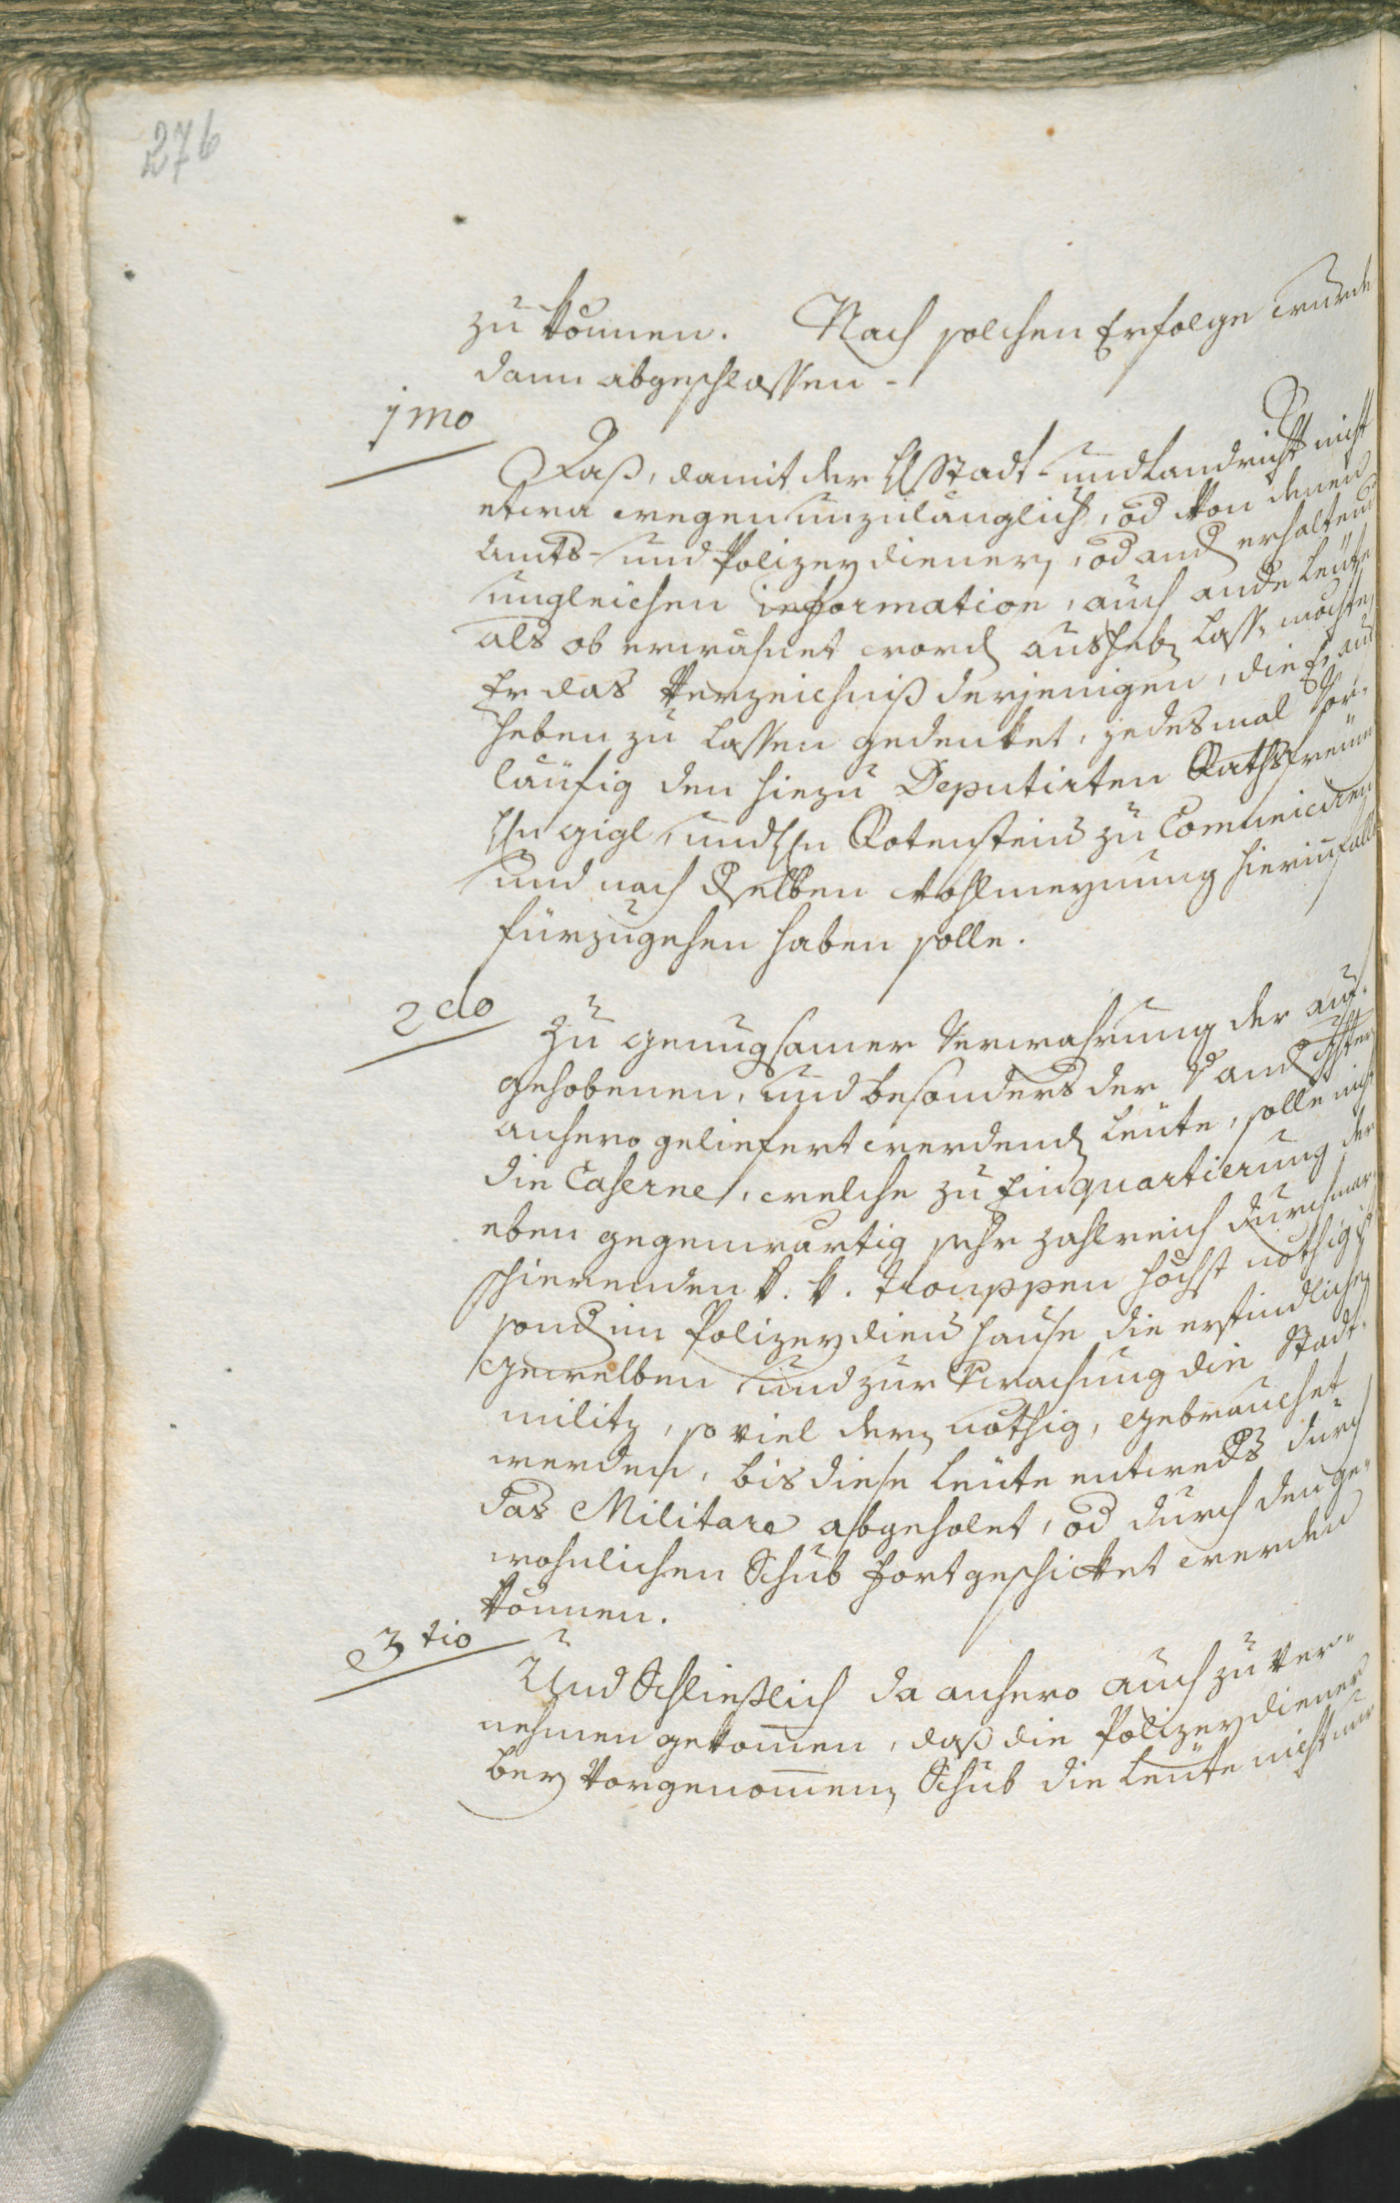 276
zu können. Nach solchen Erfolge wurde
dann abgeschlossen -
1mo
Daß, damit der H Stadt- und Landricht nicht
etwa wegen unzulänglich, od von denen
Amts- und Polizey dienern, od and erhaltend
ungleichen information, auch ande Leüte
als ob erwähnet word ausheb lass möchte,
Er das Verzeichniß derjenigen, die Er aus
heben zu lassen gedenket, jedesmal vor-
läufig den hiezu Deputirten Rathsfreünd
Hn Gigl und Hn Rotenstein zu Comuniciren
und nach dselben wohlmeynung hierinfalls
fürzugehen haben solle.
2do
Zu genugsamer Verwahrung der auf-
gehobenen, und besonders der
anhero geliefert werdend Leüte, solle nicht
die Caserne, welche zu Einquartierung der
eben gegenwärtig sehr zahlreich durchmar-
schierenden k. k. Trouppen höchst nöthig ist
sond im Polizeydien hause die erfindlichen
Gewelben und zur Bewachung die Stadt-
militz, so viel dern nöthig, gebrauchet
werden, bis diese Leüte entweds durch
das Militare abgeholet, od durch den ge-
wohnlichen Schub fortgeschicket werden
können.
3tio
Und Schließlich da anhero auch zu ver-
nehmen gekomen, daß die Polizeydiener
bey vorgenomen Schub die Leüte nicht nur